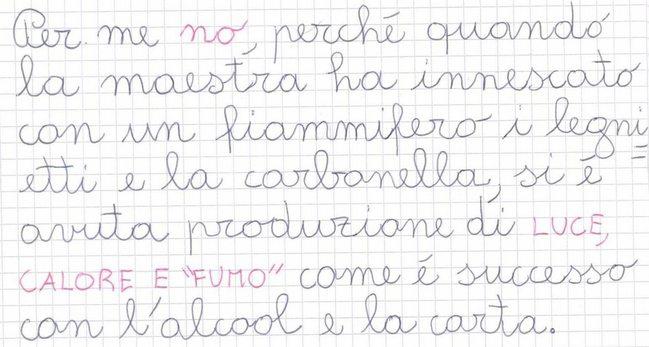 Per me no, perché quando
la maestra ha innescato
con un fiammifero i legni
etti e la carbonella, si è =
avuta produzione di LUCE,
CALORE E "FUMO" come è successo
con l'alcool e la carta.